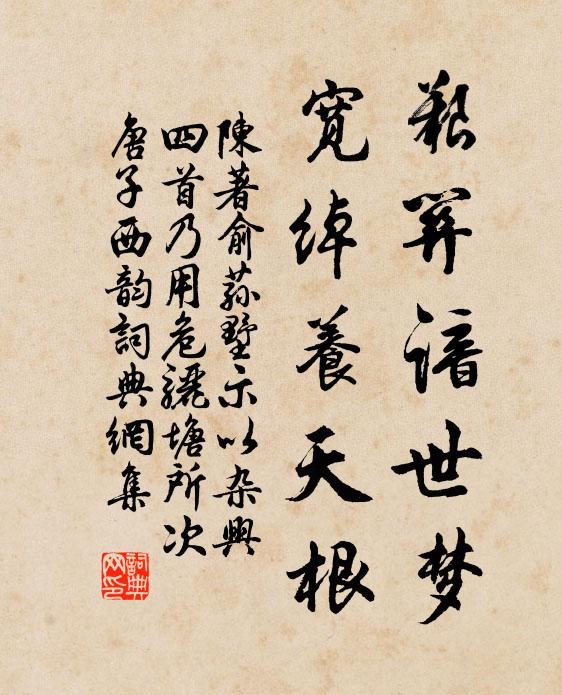 艱筭谙世梦
宽绰養天根
陳著俞荪墅示以杂興
四首乃用危驪塘所次
唐子西韵詞典網集
詞典
网印